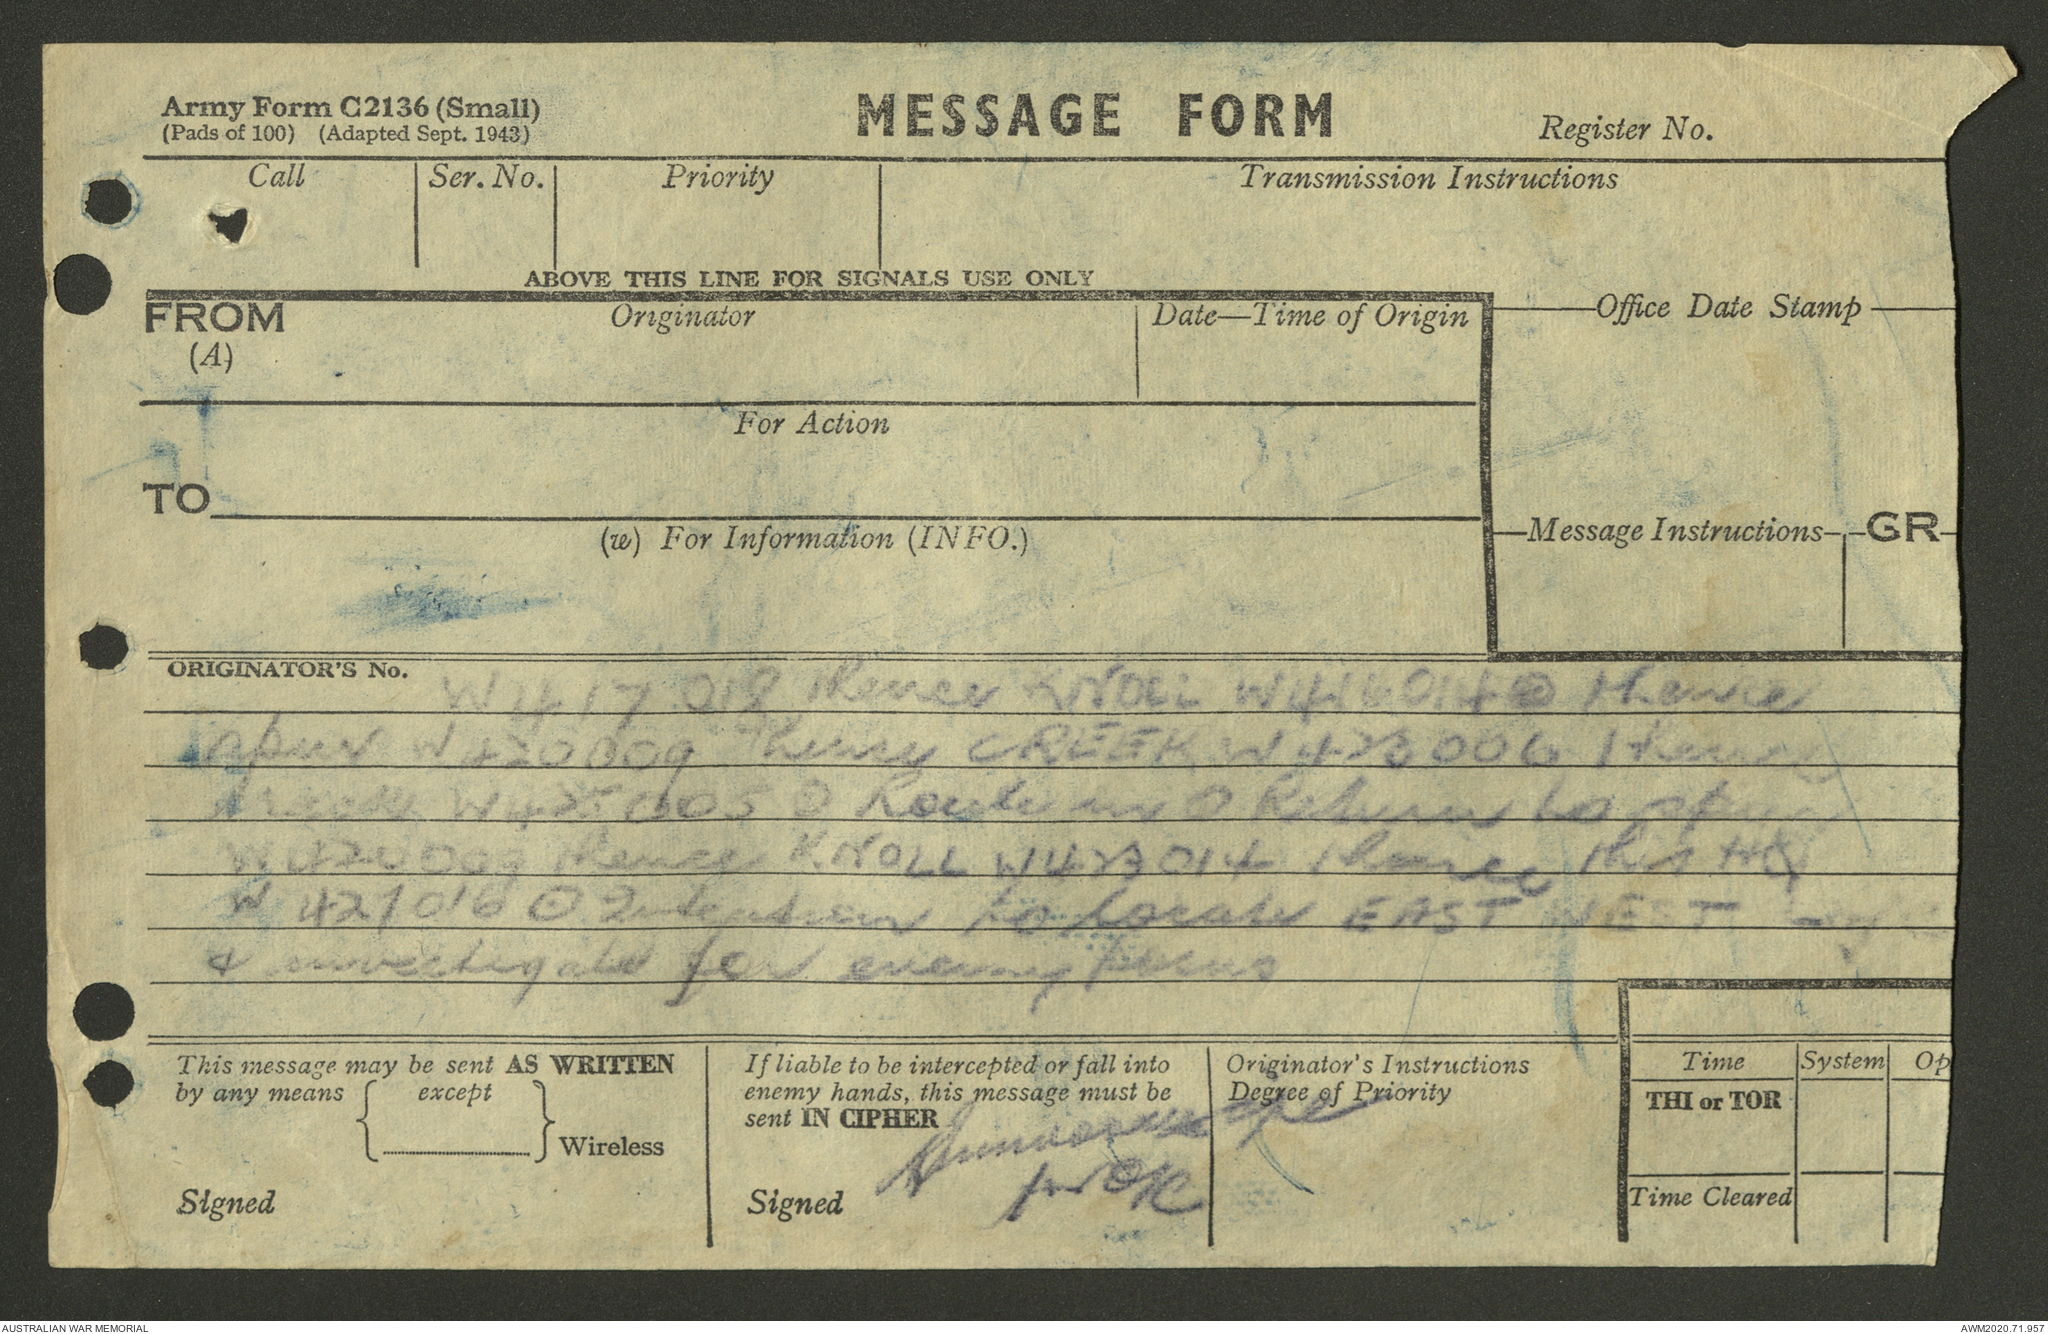 Army Form C2136 (Small)
(Pads of 100) (Adapted Sept. 1943)
MESSAGE FORM
Register No.
Call
Ser. No.
Priority
Transmission Instructions
ABOVE THIS LINE FOR SIGNALS USE ONLY
FROM
(A)
Originator
Date—Time of Origin
Office Date Stamp
For Action
TO
(w) For Information (INFO.)
Message Instructions
GR
ORIGINATOR'S No.
W 417 018 thence KNOLL W 416014 thence
spur W 420009 thence CREEK W 423006 thence
W 425005 Route in Return to spur
W 420009 thence KNOLL W 423014 thence this HQ
W 421016 Intention to locate EAST WEST
& investigate for enemy posns
This message may be sent AS WRITTEN
by any means { except } Wireless
Signed
If liable to be intercepted or fall into
enemy hands, this message must be
sent IN CIPHER
Signed
for OK
Originator's Instructions
Degree of Priority
Time
System
Op
THI or TOR
Time Cleared
AUSTRALIAN WAR MEMORIAL
AWM2020.71.957